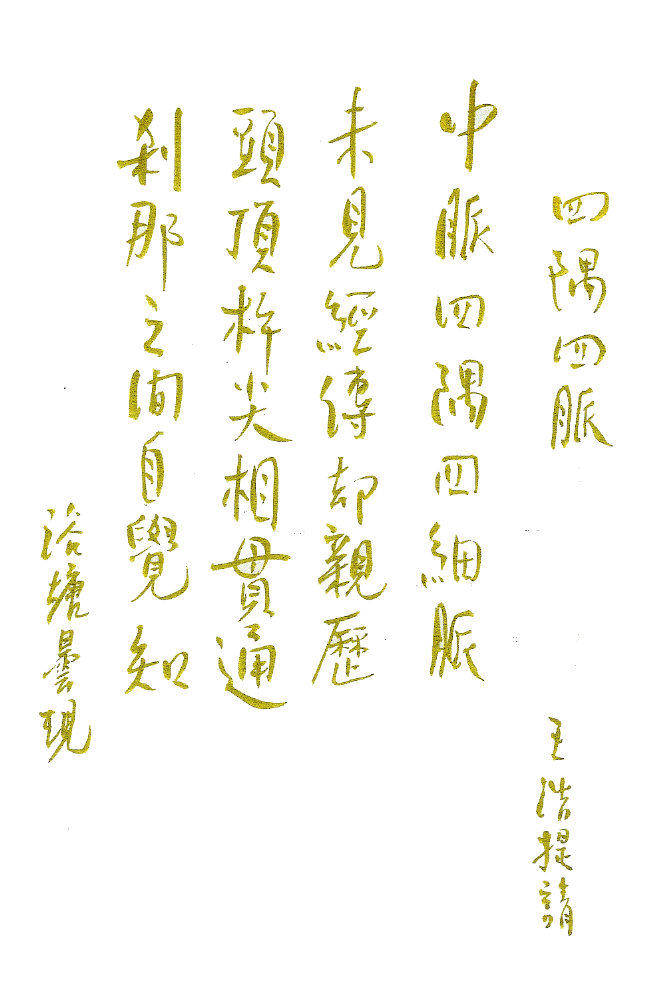 四隅四脈
王浩提請
中脈四隅四細脈
未見經傳却親歷
頭頂杵尖相貫通
刹那之间自覺知
浴塘曇現